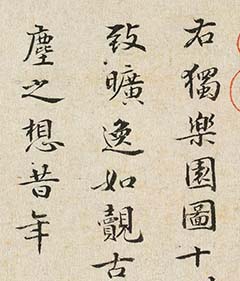 右獨樂園圖十
致曠逸如覩古
塵之想昔年